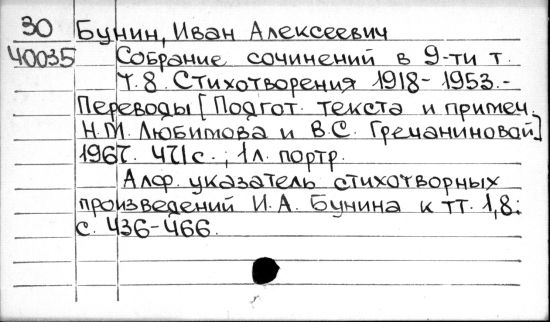 30 Бунин, Иван Алексеевич
40035 Собрание сочинений в 9-ти т.
Т.8. Стихотворения 1918-1953.-
Переводы [Подгот. текста и примеч.
Н.М. Любимова и В.С. Гречаниновой]
1967. 471 с.; 1 л. портр.
Алф. указатель стихотворных
произведений И.А. Бунина к тт. 1,8:
с. 436-466.